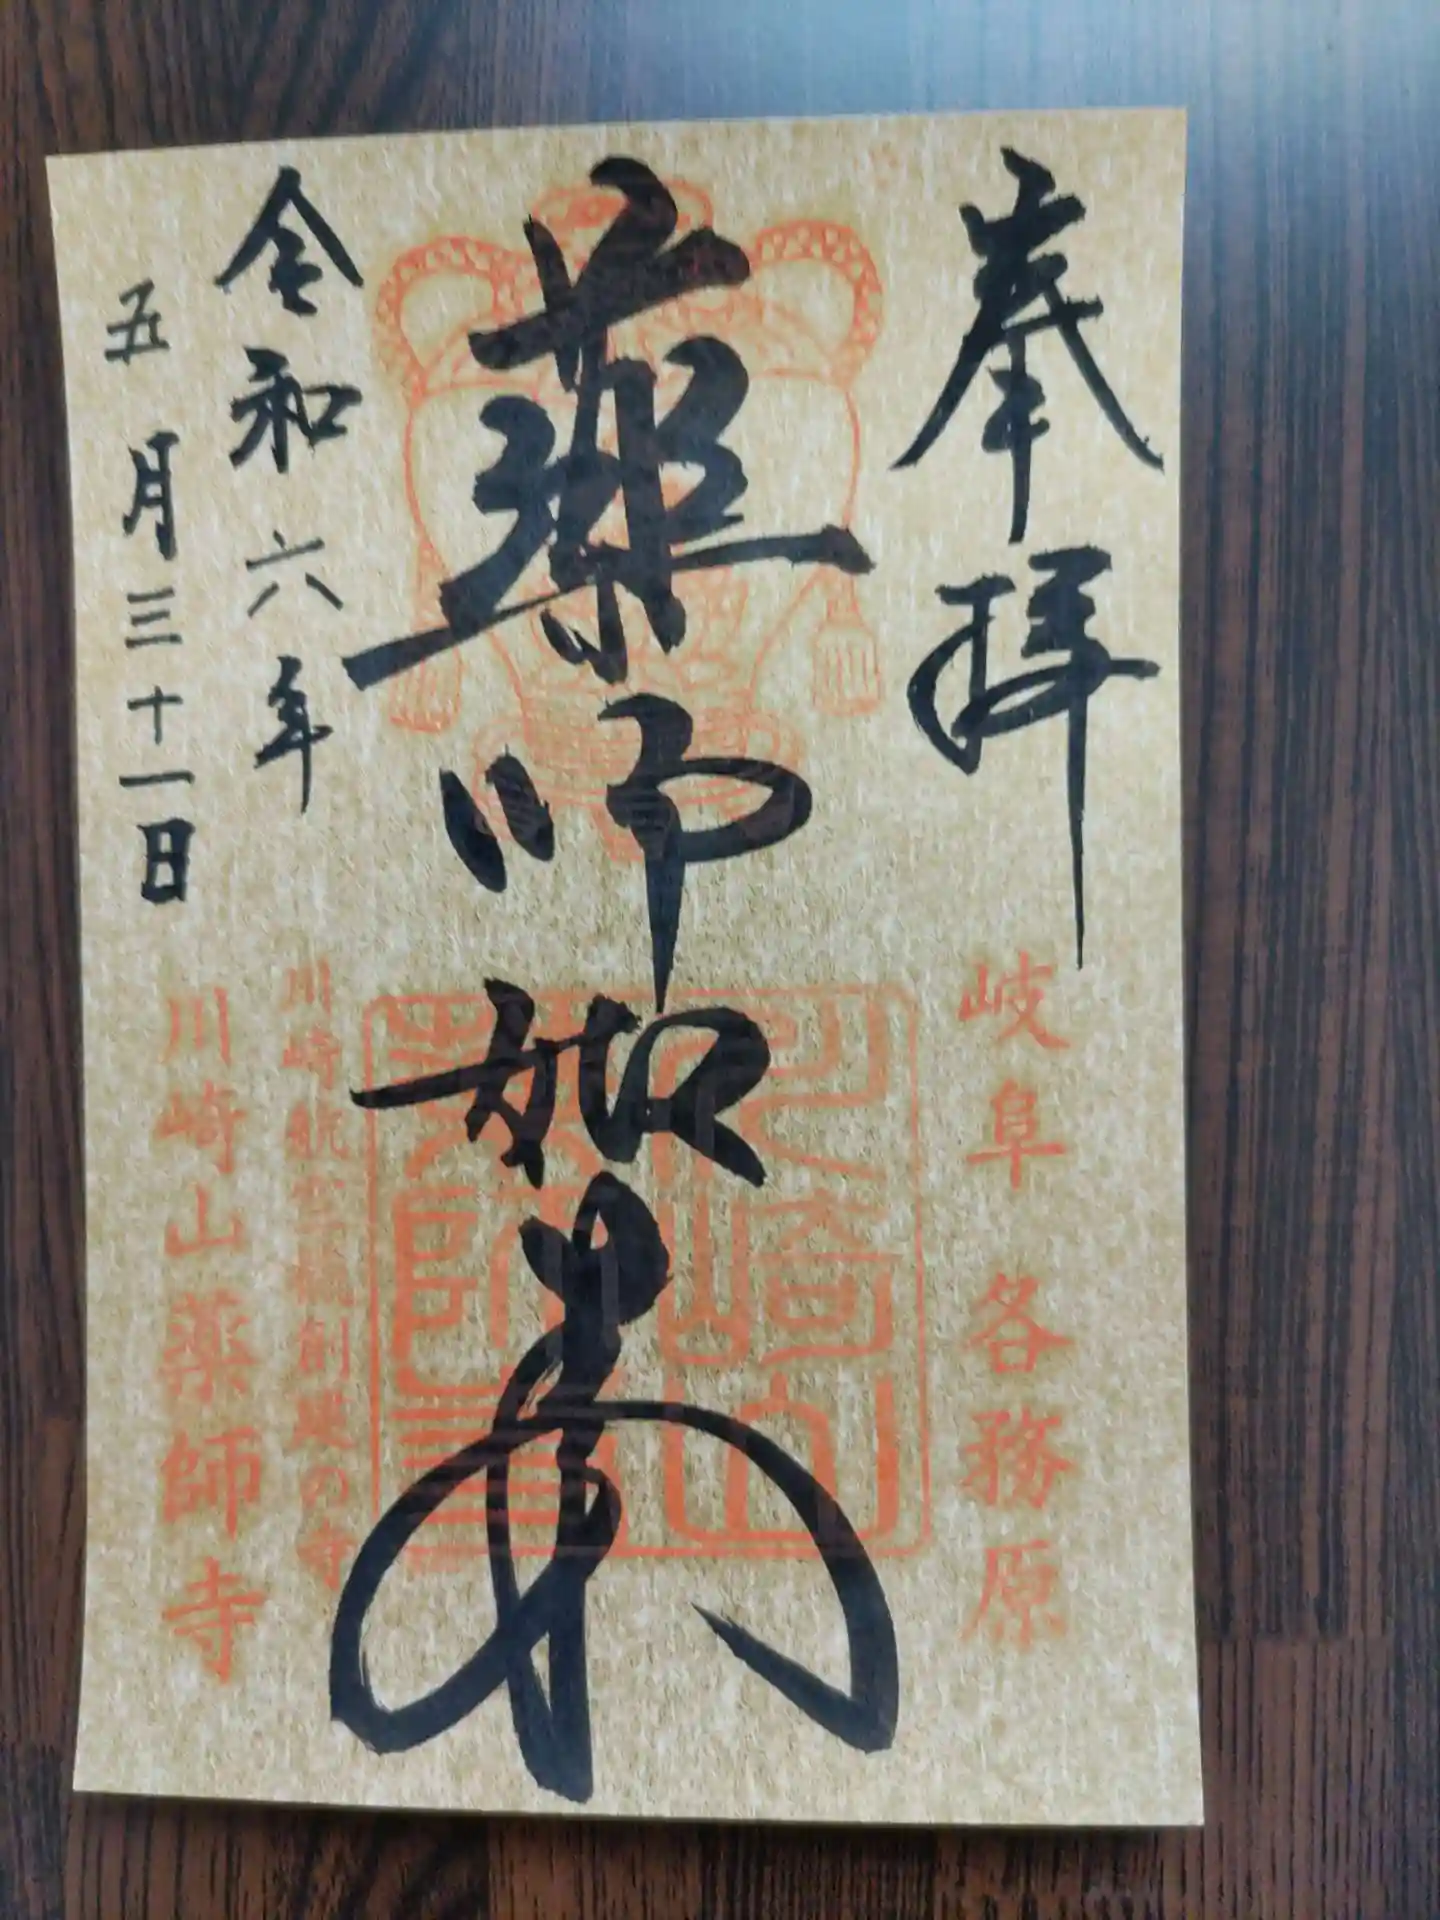 奉拝
岐阜 各務原
薬師如来
令和六年
川崎航空機創建の寺
五月三十一日
川崎山薬師寺